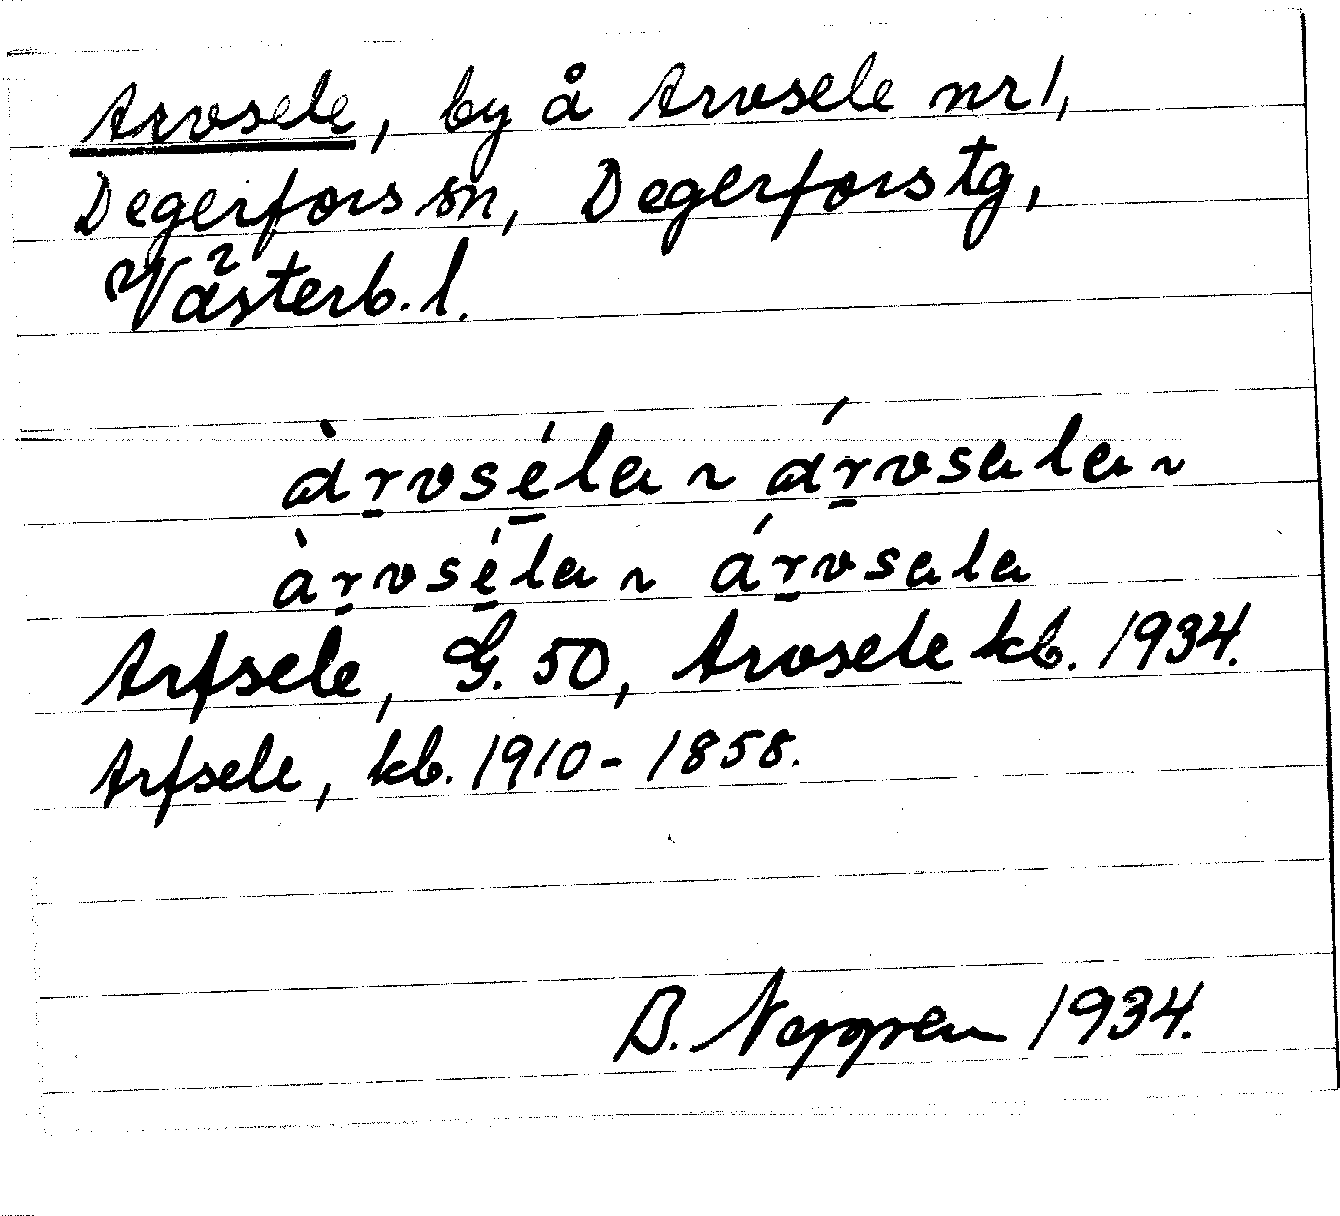 Arvsele, by å Arvsele nr 1,
Degerfors sn, Degerfors tg,
Västerb. l.
àrvséla ~ árvsala ~
àrvséla ~ árvsala
Arfsele, G. 50, Arvsele kb. 1934.
Arfsele, kb. 1910 - 1858.
B. 1934.